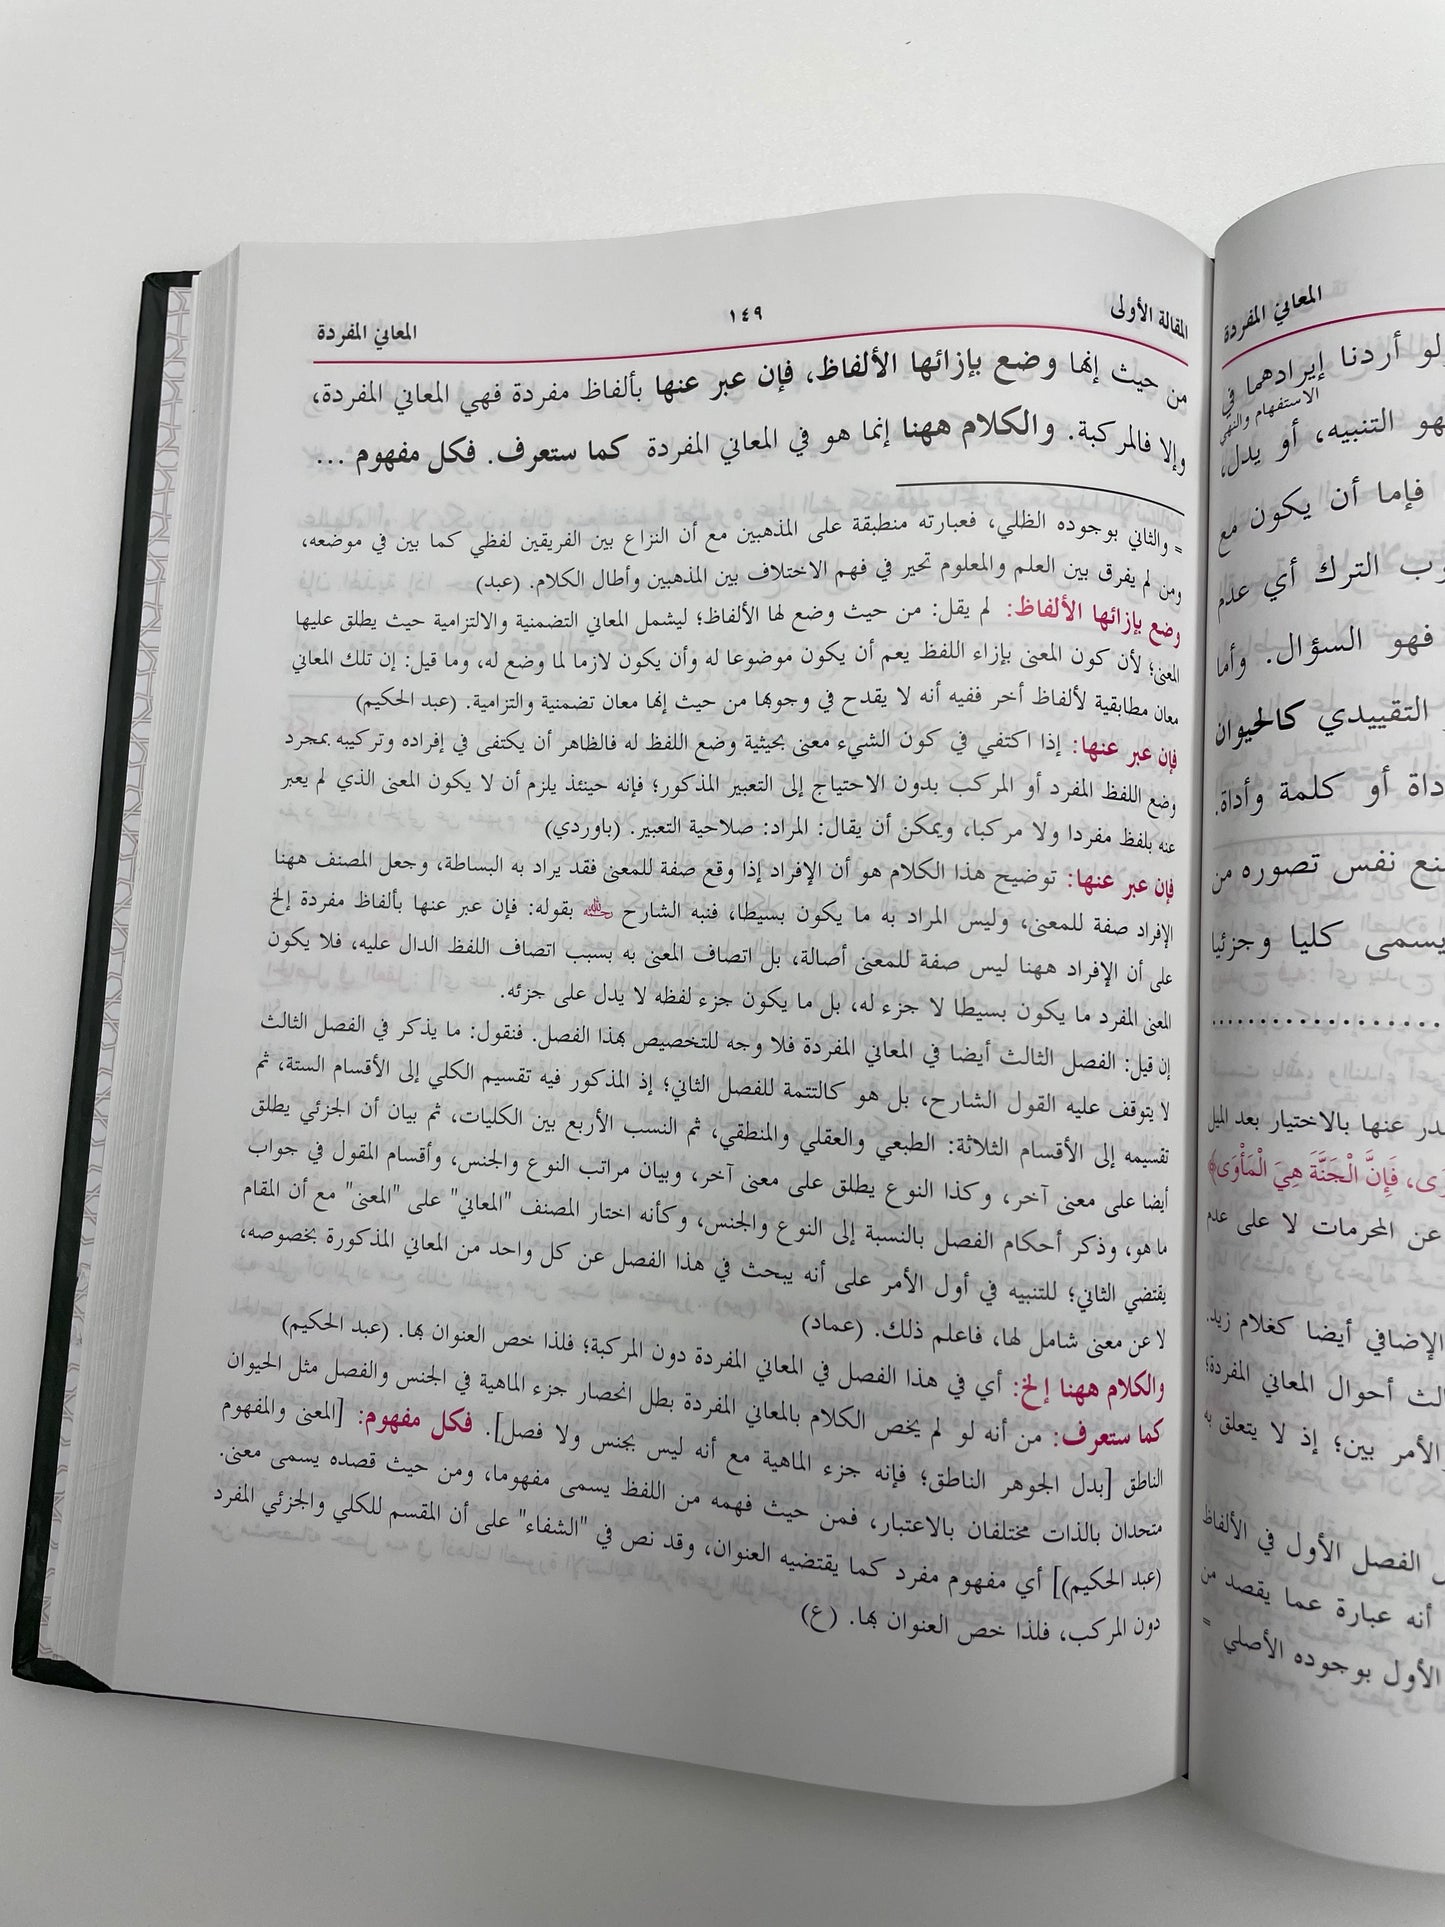 المقالة الأولى ١٤٩ المعاني المفردة
من حيث إنها وضع بإزائها الألفاظ، فإن عبر عنها بألفاظ مفردة فهي المعاني المفردة،
وإلا فالمركبة. والكلام ههنا إنما هو في المعاني المفردة كما ستعرف. فكل مفهوم ...
= والثاني بوجوده الظلي، فعبارته منطبقة على المذهبين مع أن النزاع بين الفريقين لفظي كما بين في موضعه،
ومن لم يفرق بين العلم والمعلوم تحير في فهم الاختلاف بين المذهبين وأطال الكلام. (عبد)
وضع بإزائها الألفاظ: لم يقل: من حيث وضع لها الألفاظ؛ ليشمل المعاني التضمنية والالتزامية حيث يطلق عليها
المعنى؛ لأن كون المعنى بإزاء اللفظ يعم أن يكون موضوعا له وأن يكون لازما لما وضع له، وما قيل: إن تلك المعاني
معان مطابقية لألفاظ أخر ففيه أنه لا يقدح في وجوبها من حيث إنها معان تضمنية والتزامية. (عبد الحكيم)
فإن عبر عنها: إذا اكتفي في كون الشيء معنى بحيثية وضع اللفظ له فالظاهر أن يكتفى في إفراده وتركيبه بمجرد
وضع اللفظ المفرد أو المركب بدون الاحتياج إلى التعبير المذكور؛ فإنه حينئذ يلزم أن لا يكون المعنى الذي لم يعبر
عنه بلفظ مفردا ولا مركبا، ويمكن أن يقال: المراد: صلاحية التعبير. (باوردي)
فإن عبر عنها: توضيح هذا الكلام هو أن الإفراد إذا وقع صفة للمعنى فقد يراد به البساطة، وجعل المصنف ههنا
الإفراد صفة للمعنى، وليس المراد به ما يكون بسيطا، فنبه الشارح رحمه الله بقوله: فإن عبر عنها بألفاظ مفردة إلخ
على أن الإفراد ههنا ليس صفة للمعنى أصالة، بل اتصاف المعنى به بسبب اتصاف اللفظ الدال عليه، فلا يكون
المعنى المفرد ما يكون بسيطا لا جزء له، بل ما يكون جزء لفظه لا يدل على جزئه.
إن قيل: الفصل الثالث أيضا في المعاني المفردة فلا وجه للتخصيص بهذا الفصل. فنقول: ما يذكر في الفصل الثالث
لا يتوقف عليه القول الشارح، بل هو كالتتمة للفصل الثاني؛ إذ المذكور فيه تقسيم الكلي إلى الأقسام الستة، ثم
تقسيمه إلى الأقسام الثلاثة: الطبعي والعقلي والمنطقي، ثم النسب الأربع بين الكليات، ثم بيان أن الجزئي يطلق
أيضا على معنى آخر، وكذا النوع يطلق على معنى آخر، وبيان مراتب النوع والجنس، وأقسام المقول في جواب
ما هو، وذكر أحكام الفصل بالنسبة إلى النوع والجنس، وكأنه اختار المصنف "المعاني" على "المعنى" مع أن المقام
يقتضي الثاني؛ للتنبيه في أول الأمر على أنه يبحث في هذا الفصل عن كل واحد من المعاني المذكورة بخصوصه،
لا عن معنى شامل لها، فاعلم ذلك. (عماد)
والكلام ههنا إلخ: أي في هذا الفصل في المعاني المفردة دون المركبة؛ فلذا خص العنوان بها. (عبد الحكيم)
كما ستعرف: من أنه لو لم يخص الكلام بالمعاني المفردة بطل انحصار جزء الماهية في الجنس والفصل مثل الحيوان
الناطق [بدل الجوهر الناطق؛ فإنه جزء الماهية مع أنه ليس بجنس ولا فصل]. فكل مفهوم: [المعنى والمفهوم
متحدان بالذات مختلفان بالاعتبار، فمن حيث فهمه من اللفظ يسمى مفهوما، ومن حيث قصده يسمى معنى.
(عبد الحكيم)] أي مفهوم مفرد كما يقتضيه العنوان، وقد نص في "الشفاء" على أن المقسم للكلي والجزئي المفرد
دون المركب، فلذا خص العنوان بها. (ع)
المعاني المفردة
لو أردنا إيرادهما في
الاستفهام والنهي
هو التنبيه، أو يدل،
فإما أن يكون مع
الترك أي عدم
فهو السؤال. وأما
التقييدي كالحيوان
أو كلمة وأداة.
نفس تصوره من
يسمى كليا وجزئيا
عنها بالاختيار بعد الميل
فَإِنَّ الْجَنَّةَ هِيَ الْمَأْوَى﴾
عن المحرمات لا على عدم
الإضافي أيضا كغلام زيد.
أحوال المعاني المفردة؛
الأمر بين؛ إذ لا يتعلق به
الفصل الأول في الألفاظ
أنه عبارة عما يقصد من
الأول بوجوده الأصلي =